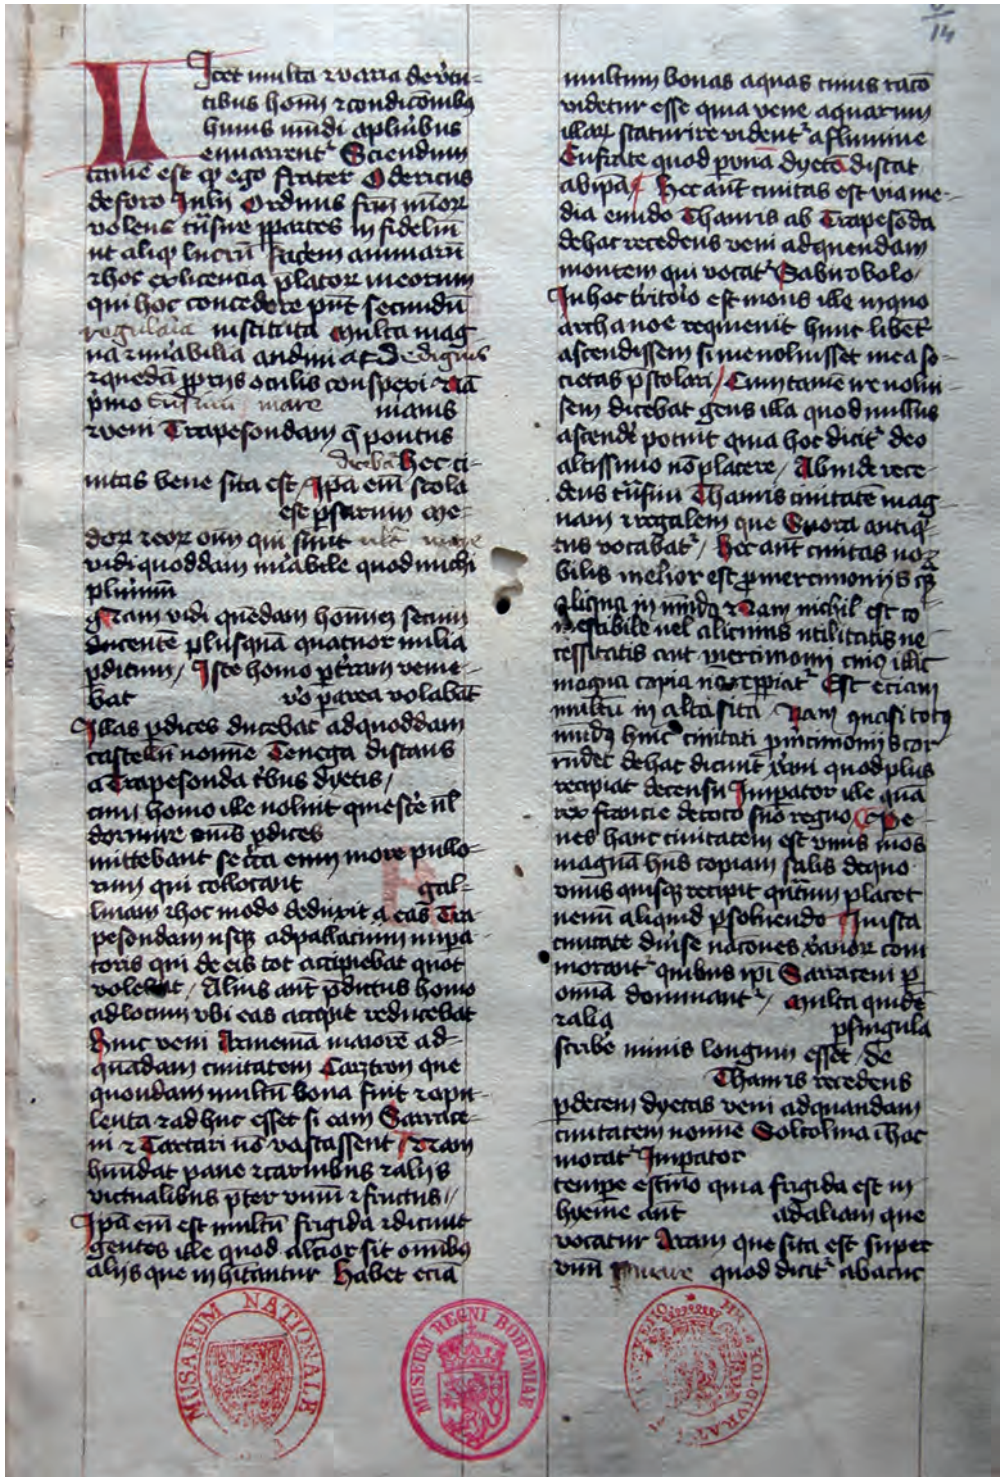 Licet multa et varia de ritu-
tibus homī et condicōnibus
huius mūdi a plūbus
enuarrentᵉ Sciendum
tamē est ꝙ ego frater Odericus
de foro Julij Ordinis frm̄ mīor
volens tn̄sire ꝑ partes in fidelium
ut aliqͥ lucrū facem animarū
et hoc ex licencia p̄lator meorum
qui hoc concedere pn̄t secundū
regularia instituta multa mag
na et mirabilia audiui at de dignis
et quedā ꝓprijs oculis conspexi Nā
pͥmo mare maius
et veni Trapesondam q̄ pontus
dicebatᵉ Hec ci-
uitas bene sita est Ipā em̄ scola
est ꝑsarum me-
dor et eor om̄ qui sunt ult mare
vidi quoddam mirabile quod michi
plūmū
Nam vidi quendam homīem secum
ducentē plusquā quatuor milia
ꝑdicum / Iste homo ꝑ tr̄ram venie-
bat vͦo ꝑ area volabāt
Illas ꝑdices ducebat ad quoddam
castellū nomīe Tenega distans
a Trapesonda tͥbus dyetis /
cum homo ille voluit quiescͤe ul̄
dormire omīs ꝑdices
mittebant se cͥca eum more pullo-
rum qui collocant gal-
linam et hoc modo deduxit eas Tra
pesondam usqꝫ ad pallacium impa-
toris qui de eis tot accipiebat quot
volebat / Alius aut p̄dictus homo
ad locum vbi eas accepit reducebat
Hinc veni Armeniā maiorē ad-
quādam ciuitatem Carztron que
quondam multū bona fuit et opu-
lenta et ad huc esset si eam Sarrace-
ni et Tartari nō vastassent Nam
hūndat pane et carnibus et alijs
victualibus p̄ter vinū et fructus //
Ipā em̄ est multū frigida et dicunt
gentes ille quod alcior sit omībus
alijs que in hītantur Habet eciā
multum bonas aquas cuius racō
videtur esse quia vene aquarum
illar staturire videntᵉ a flumine
Eufrate quod ꝑ vnā dyetā distat
ab ipā Hec aut ciuitas est via me-
dia eundo Thauris ab Trapesoda
de hac recedens veni ad quendam
montem qui vocatᵉ Sabuobolo /
In hoc tͥritorio est mons ille in quo
archa noe requieuit hunc libentͤ
ascendissem si me voluisset mea so-
cietas p̄stolari / Cum tamē ire volui-
sem dicebat gens illa quod nullus
ascendͤe potuit quia hoc dicitᵉ deo
altissimo nō placere / Ab inde rece-
dens tn̄siui Thauris ciuitatē mag-
nam et regalem que Suora antiqͥ-
tus vocabatᵉ / Hec aut ciuitas no-
bilis melior est ꝓ mercimonijs qͣꝫ
aliqua in mūdo Nam nichil est co-
mestibile vel alicuius utilitatis ne-
cessitatis aut mercimonij cuiꝰ illic
magna copia nō reꝑiatᵉ Est eciam
multū in alta sita / Nam quasi totꝰ
mūdꝰ huic ciuitati ꝑ mͥcimonijs cor-
rūdet de hac dicunt quod plus
recipiat de censu Imperator ille quā
rex francie de toto suo regno Pe-
nes hanc ciuitatem est vnus mōs
magnā hūs copiam salis de quo
vnus quisqꝫ recipit qn̄tum placet
nemi aliquid ꝑsoluendo In ista
ciuitate diūse nacōnes com-
morantᵉ quibus ipi Sarraceni ꝑ
omīa dominantᵉ / multa quidē
et alia ꝑ singula
scribͤe nimis longum esset / de
Thauris recedens
ꝑ decem dyetas veni ad quandam
ciuitatem nomīe Soltolina ī hac
moratᵉ Imperator
tempe estiuo quia frigida est in
hyeme aut ad aliam que
vocatur Aram que sita est super
vnū mare quod dicitᵉ abacuc
MUSAEUM NATIONALE
MUSEUM REGNI BOHEMIAE